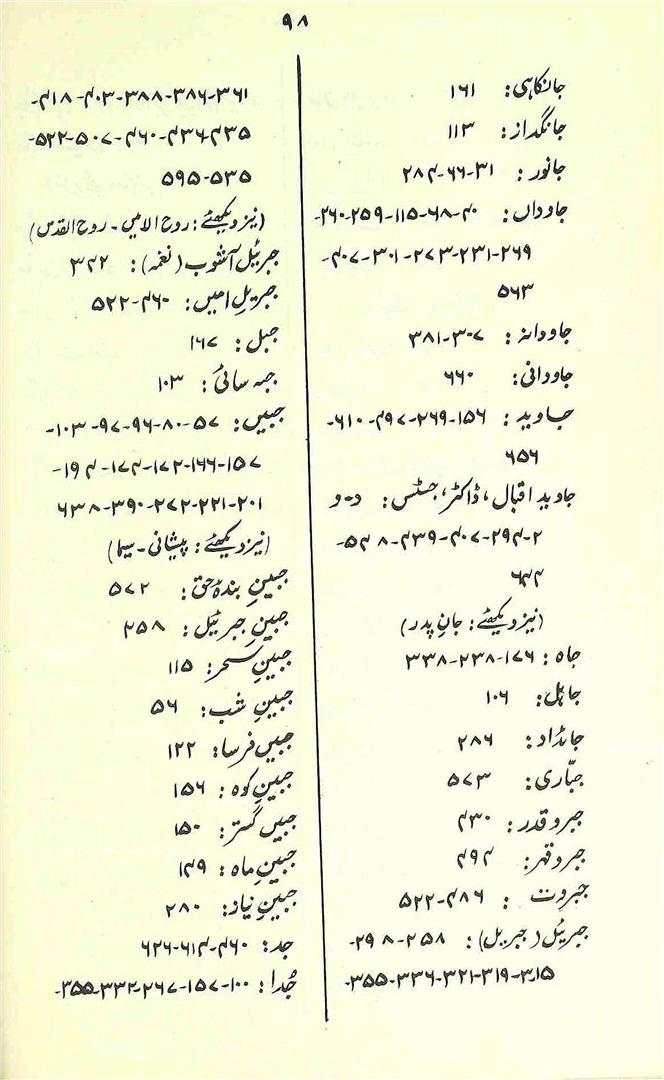 ۹۸
جانکاہی: ۱۶۱
جانگداز: ۱۱۳
جانور: ۳۱-۶۶-۲۸۴
جاوداں: ۴۰-۶۸-۱۱۵-۲۵۹-۲۶۰-
۲۶۹-۲۳۱-۲۷۳-۳۰۱-۴۰۷-
۵۶۳
جاودانہ: ۳۰۷-۳۸۱
جاودانی: ۶۶۰
جاوید: ۱۵۶-۲۶۹-۴۹۷-۶۱۰-
۶۵۶
جاوید اقبال، ڈاکٹر، جسٹس: د-و
۲-۲۹۴-۴۰۷-۴۳۹-۵۴۸-
۶۴۴
(نیز دیکھئے: جانِ پدر)
جاہ: ۱۷۶-۲۳۸-۳۳۸
جاہل: ۱۰۶
جائداد: ۲۸۶
جبّاری: ۵۷۳
جبر و قدر: ۴۳۰
جبر و قہر: ۴۹۴
جبروت: ۴۸۶-۵۲۲
جبرئیل (جبریل): ۲۵۸-۲۹۸-
۳۱۵-۳۱۹-۳۲۱-۳۳۶-۳۵۵-
۳۶۱-۳۸۶-۳۸۸-۴۰۳-۴۱۸-
۴۳۵-۴۳۶-۴۶۰-۵۰۷-۵۲۲-
۵۳۵-۵۹۵
(نیز دیکھئے: روح الامیں- روح القدس)
جبرئیل آشوب (نغمہ): ۳۴۲
جبریلِ امیں: ۴۶۰-۵۲۲
جبل: ۱۶۷
جبہ سائی: ۱۰۳
جبیں: ۵۷-۸۰-۹۶-۹۷-۱۰۳-
۱۵۷-۱۶۶-۱۷۲-۱۷۴-۱۹۴-
۲۰۱-۲۲۱-۲۷۲-۳۹۰-۶۳۸
(نیز دیکھئے: پیشانی- سیما)
جبینِ بندۂ حق: ۵۷۲
جبینِ جبرئیل: ۲۵۸
جبینِ سحر: ۱۱۵
جبینِ شب: ۵۶
جبیں فرسا: ۱۲۲
جبینِ کوہ: ۱۵۶
جبیں گستر: ۱۵۰
جبینِ ماہ: ۱۴۹
جبینِ نیاز: ۲۸۰
جد: ۴۶۰-۶۱۴-۶۲۶
جُدا: ۱۰۰-۱۵۷-۲۶۷-۳۳۲-۳۵۵-